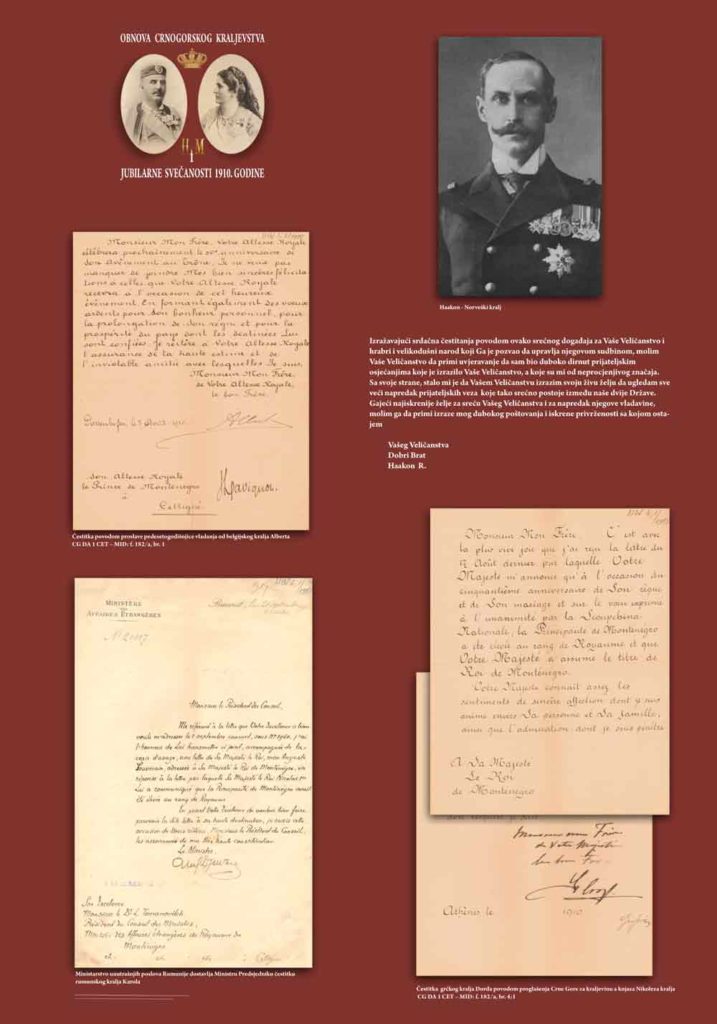 OBNOVA CRNOGORSKOG KRALJEVSTVA
H M
I
JUBILARNE SVEČANOSTI 1910. GODINE
Monsieur Mon Frère, Votre Altesse Royale
célébrera prochainement le 50e anniversaire de
Son Avènement au Trône. Je ne veux pas
manquer de joindre Mes bien sincères félicita-
tions à celles que Votre Altesse Royale
recevra à l'occasion de cet heureux
événement. En formant également des vœux
ardents pour Son bonheur personnel, pour
la prolongation de Son règne et pour la
prospérité du pays dont les destinées Lui
sont confiées, Je réitère à Votre Altesse Royale
l'assurance de la haute estime et de
l'inviolable amitié avec lesquelles Je suis,
Monsieur Mon Frère,
de Votre Altesse Royale,
le bon Frère,
Albert
Son Altesse Royale
le Prince de Monténégro
à
Cettigné
J. Davignon.
Čestitka povodom proslave pedesetogodišnjice vladanja od belgijskog kralja Alberta
CG DA 1 CET – MID: f. 182/a, br. 1
MINISTÈRE
DES
AFFAIRES ÉTRANGÈRES
Monsieur le Président du Conseil,
Me référant à la lettre que Votre Excellence a bien
voulu m'adresser le
l'honneur de Lui transmettre ci joint, accompagnée de la
copie d'usage, une lettre de Sa Majesté le Roi, mon Auguste
Souverain, adressée à Sa Majesté le Roi de Monténégro, en
réponse à la lettre par laquelle Sa Majesté le Roi Nicolas Ier
Lui a communiqué que la Principauté de Monténégro avait
été élevée au rang de Royaume.
En priant Votre Excellence de vouloir bien faire
parvenir la dite lettre à Sa haute destination, je saisis cette
occasion de Vous réitérer, Monsieur le Président du Conseil,
les assurances de ma très haute considération.
Le Ministre,
Son Excellence
Monsieur le Dr L. Tomanovitch
Président du Conseil des Ministres,
Ministre des Affaires Étrangères du Royaume de
Monténégro
Ministarstvo unutrašnjih poslova Rumunije dostavlja Ministru Predsjedniku čestitku
rumunskog kralja Karola
Haakon - Norveški kralj
Izražavajući srdačna čestitanja povodom ovako srećnog događaja za Vaše Veličanstvo i
hrabri i velikodušni narod koji Ga je pozvao da upravlja njegovom sudbinom, molim
Vaše Veličanstvo da primi uvjeravanje da sam bio duboko dirnut prijateljskim
osjećanjima koje je izrazilo Vaše Veličanstvo, a koje su mi od neprocjenjivog značaja.
Sa svoje strane, stalo mi je da Vašem Veličanstvu izrazim svoju živu želju da ugledam sve
veći napredak prijateljskih veza koje tako srećno postoje između naše dvije Države.
Gajeći najiskrenije želje za sreću Vašeg Veličanstva i za napredak njegove vladavine,
molim ga da primi izraze mog dubokog poštovanja i iskrene privrženosti sa kojom osta-
jem
Vašeg Veličanstva
Dobri Brat
Haakon R.
Monsieur Mon Frère. C'est avec
la plus vive joie que j'ai reçu la lettre du
Août dernier par laquelle Votre
Majesté m'annonce qu'à l'occasion du
cinquantième anniversaire de Son règne
et de Son mariage et sur le vœu exprimé
à l'unanimité par la Scoupchina
Nationale, la Principauté de Monténégro
a été élevée au rang de Royaume et que
Votre Majesté a assumé le titre de
Roi de Monténégro.
Votre Majesté connaît assez les
sentiments de sincère affection dont je suis
animé envers Sa personne et Sa famille,
ainsi que l'admiration dont je suis pénétré
À Sa Majesté
Le Roi
de Monténégro
Monsieur mon Frère
de Votre Majesté
le bon Frère
Athènes le 1910
Čestitka grčkog kralja Đorđa povodom proglašenja Crne Gore za kraljevinu a knjaza Nikole za kralja
CG DA 1 CET – MID: f. 182/a, br. 4;1